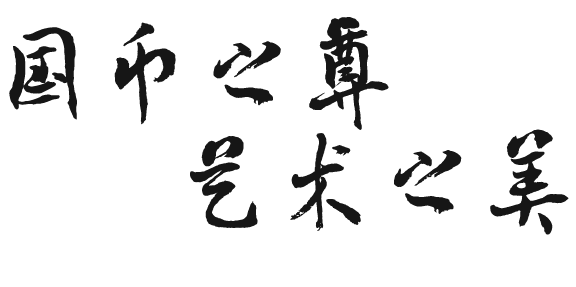 国币之尊
艺术之美